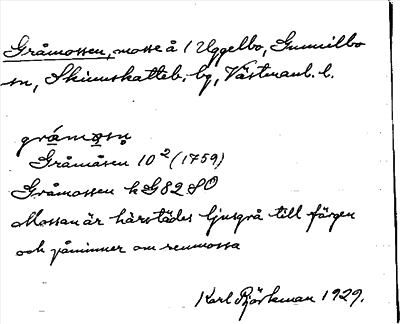 Gråmossen, mosse å 1 Uggelbo, Gunnilbo
sn, Skinnskatteb. bg, Västmanl. l.
gråmosn
Gråmåsen 10² (1759)
Gråmossen kG82 SO
Mossan är härstädes ljusgrå till färgen
och påminner om renmossa
Karl Björkman 1929.